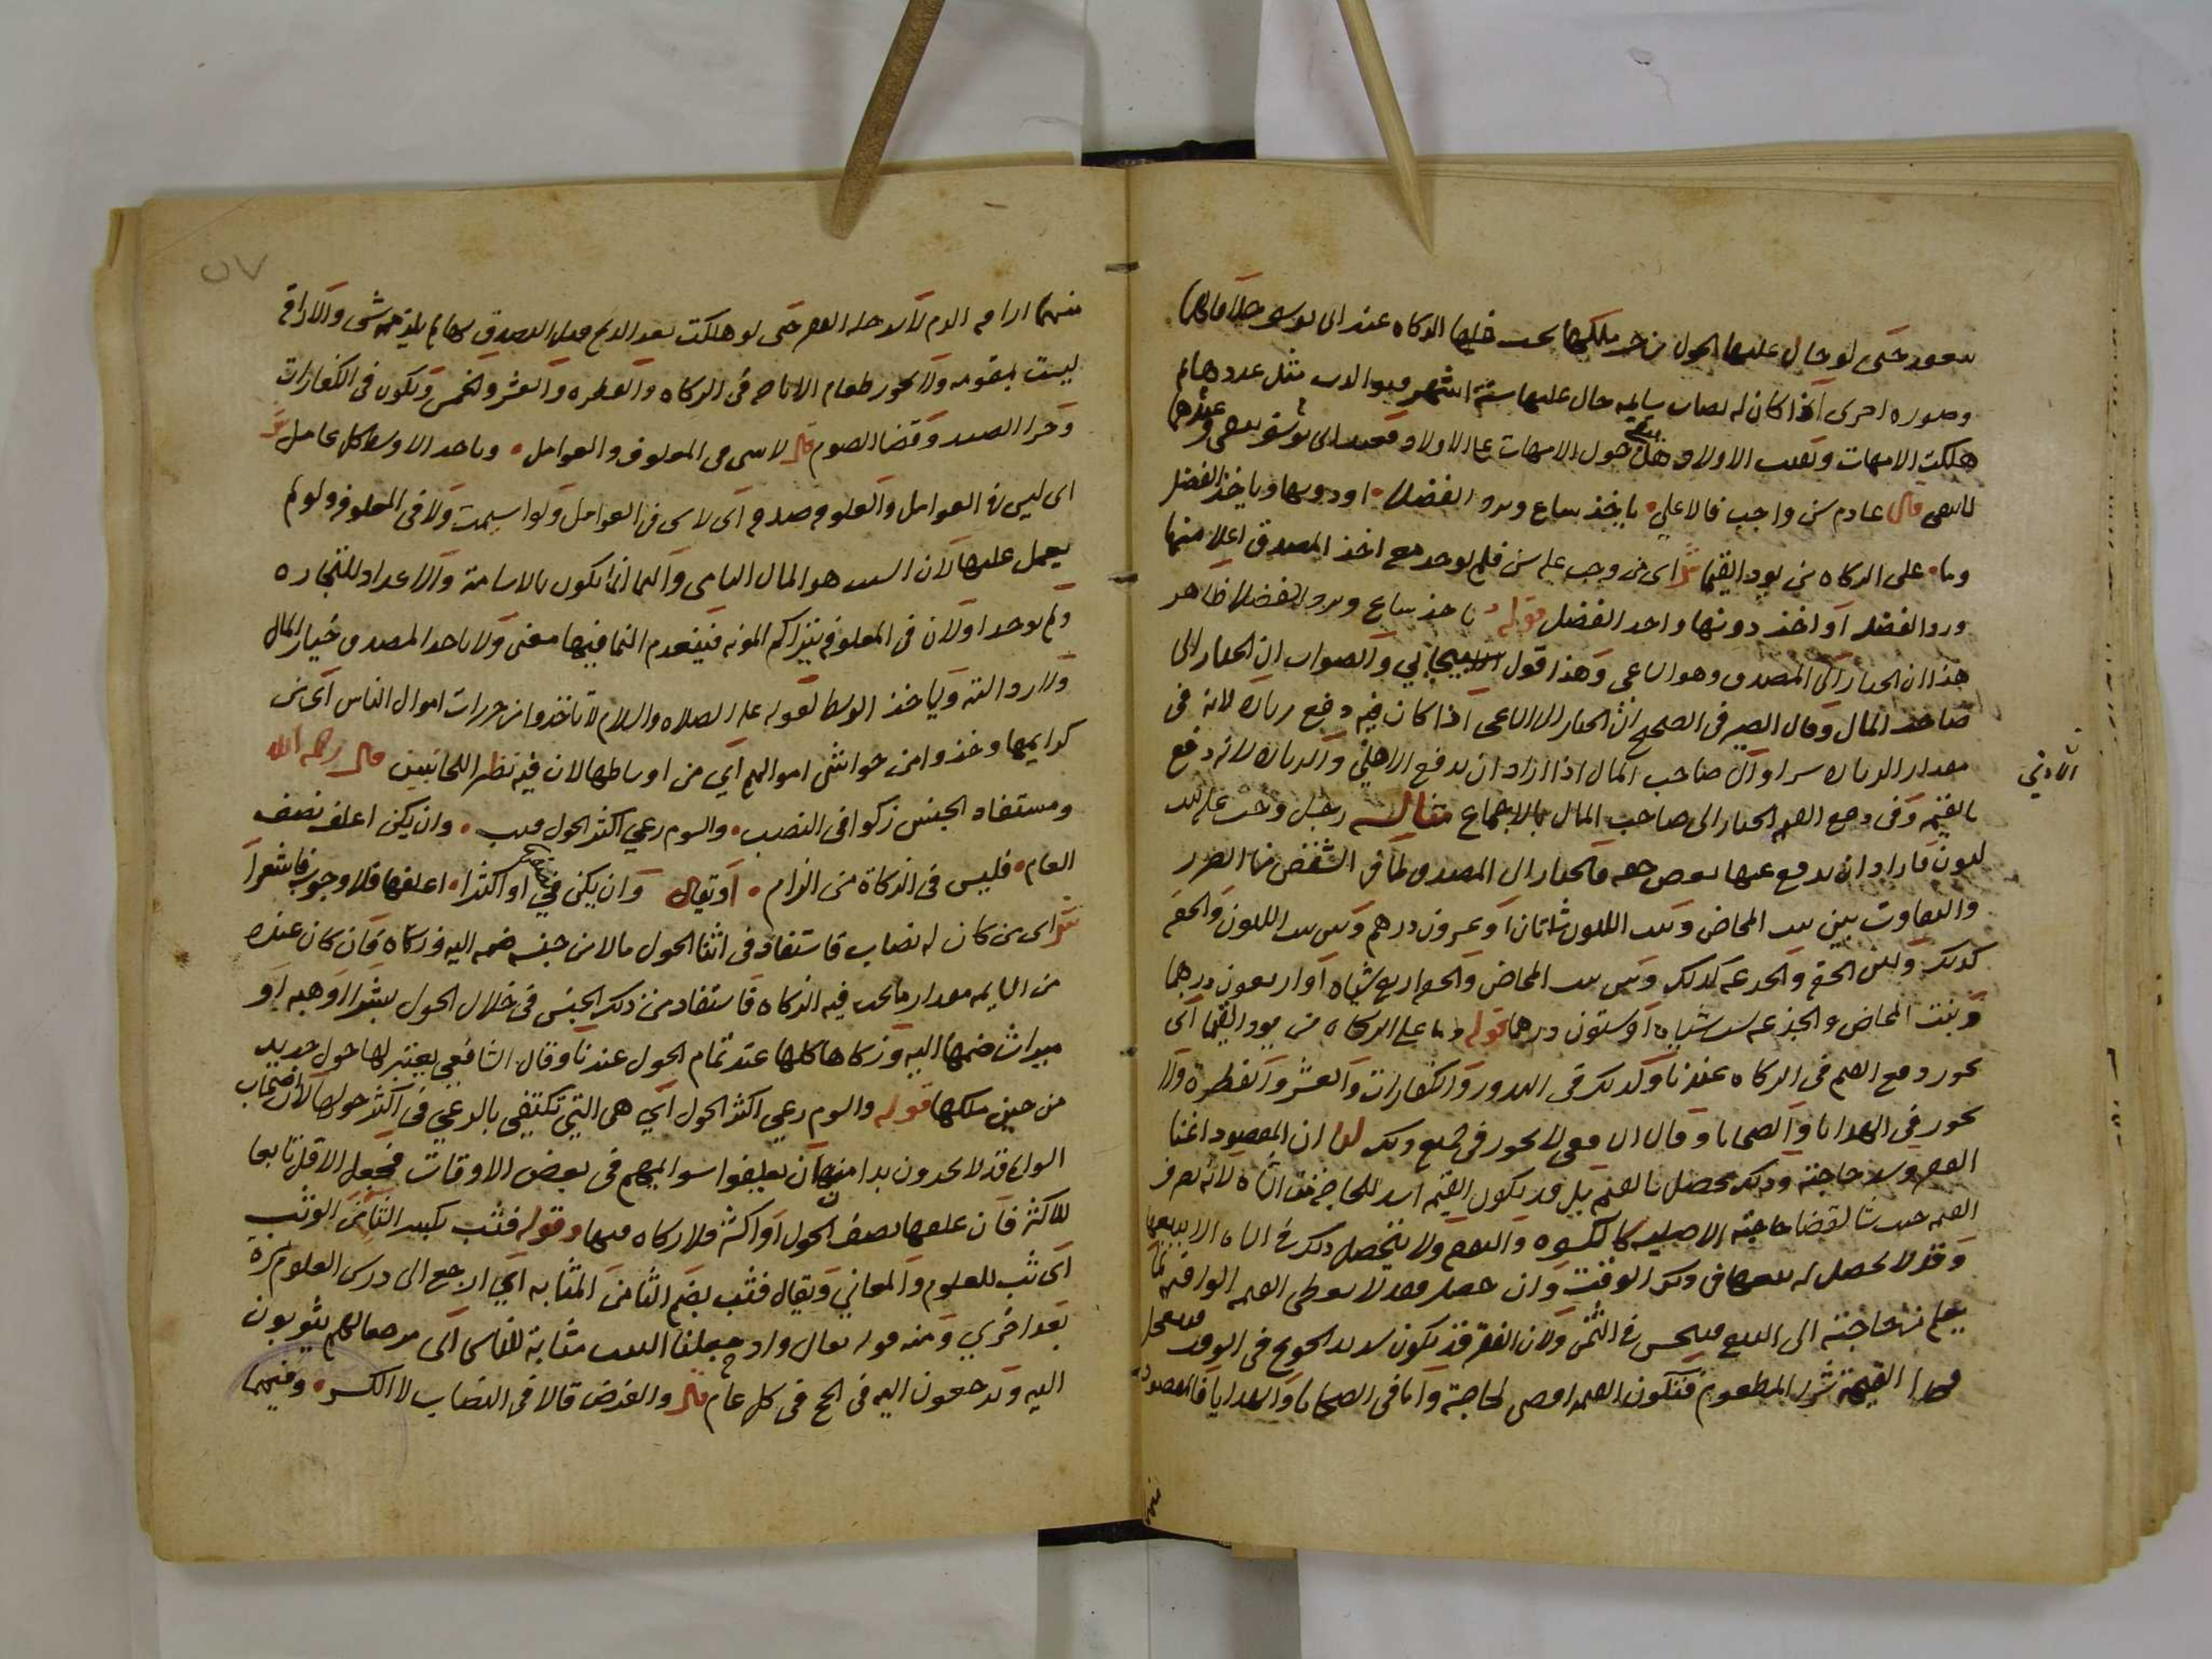 ينعقد حتى لو حال عليها الحول من حين ملكها تجب فيها الزكاة عند ابي يوسف خلافا لهما
وصورة اخرى اذا كان له نصاب سايمة حال عليها ستة اشهر فتوالدت مثل عددها ثم
هلكت الامهات وبقيت الاولاد هل يبقى حول الامهات على الاولاد فعند ابي يوسف يبقى وعندهما
لا يبقى قال عادم سن واجب فالاعلى ياخذ ساع ويرد الفضلا او دونها وياخذ الفضل
وما على الزكاة من يود القيما ش اي من وجب عليه سن فلم توجد معه اخذ المصدق اعلا منها
ورد الفضل او اخذ دونها واخذ الفضل قوله ياخذ ساع ويرد الفضلا ظاهر
هذا ان الخيار الى المصدق وهو الساعي وهذا قول الاسبيجابي والصواب ان الخيار الى
صاحب المال وقال الصيرفي الصحيح ان الخيار الى الساعي اذا كان فيه دفع زيادة لانه في
مقدار الزيادة شراء والى صاحب المال اذا اراد ان يدفع الادنى والزيادة لانه دفع
بالقيمة وفي دفع القيمة الخيار الى صاحب المال بالاجماع مثاله رجل وجب عليه بنت
لبون فاراد ان يدفع عنها بعض حقة فالخيار الى المصدق لما في الشقص من الضرر
والتفاوت بين بنت المخاض وبنت اللبون شاتان او عشرون درهم وبين بنت اللبون والحقة
كذلك وبين الحقة والجذعة كذلك وبين بنت المخاض والحقة اربع شياه او اربعون درهما
وبنت المخاض والجذعة ست شياه او ستون درهما قوله وما على الزكاة من يود القيما اي
يجوز دفع القيم في الزكاة عندنا وكذلك في النذور والكفارات والعشر والفطرة ولا
يجوز في الهدايا والضحايا وقال الشافعي لا يجوز في جميع ذلك لنا ان المقصود اغنا
الفقير وسد حاجته وذلك يحصل بالقيم بل قد يكون القيمة اسد للحاجة من الشاة لانه يصرف
القيمة حيث شا لقضا حاجته الاصلية كالكسوة والنفقة ولا يتحصل ذلك في الشاة الا ببيعها
وقد لا يحصل له بيعها في ذلك الوقت وان حصل فقد لا يعطى القيمة الوافية لما
يعلم من حاجته الى البيع فيبخس في الثمن ولان الفقير قد يكون شديد الجوع في الوقت فيتعجل
بهذا القيمة شرا المطعوم فتكون القيمة اقضى لحاجته واما في الضحايا والهدايا فالمقصود
الادنى
منهما اراقة الدم لا سد خلة الفقير حتى لو هلكت بعد الذبح قبل التصدق بها لم يلزمه شي والاراقة
ليست بمتقومة ولا يجوز طعام الاباحة في الزكاة والفطرة والعشر والخمس ويكون في الكفارات
وجزا الصيد وقضا الصوم قال لا شي في المعلوف والعوامل وياخذ الاوسط كل عامل ش
اي ليس في العوامل والعلوفة صدقة اي لا شي في العوامل ولو اسيمت ولا في المعلوفة ولو لم
يعمل عليها لان السبب هو المال النامي والنما انما يكون بالاسامة والاعداد للتجارة
ولم يوجد اولان في المعلوفة يتراكم المونة فينعدم النما فيها معنى ولا ياخذ المصدق خيار المال
ولا رذالته وياخذ الوسط لقوله عليه الصلاة والسلام لا تاخذوا من حزرات اموال الناس اي من
كرايمها وخذوا من حواشي اموالهم اي من اوساطها لان فيه نظر اللجانبين قال رحمه الله
ومستفاد الجنس زكوا في النصب والسوم رعي اكثر الحول وان يكن اعلف نصف
العام فليس في الزكاة من الزام او يقال وان يكن في نصفه او اكثرا اعلفها فلا وجوب فاشعرا
ش اي من كان له نصاب فاستفاد في اثنا الحول مالا من جنسه ضمه اليه وزكاه فان كان عنده
من السايمة مقدار ما تجب فيه الزكاة فاستفاد من ذلك الجنس في خلال الحول بشرا او هبة او
ميراث ضمها اليه وزكاها كلها عند تمام الحول عندنا وقال الشافعي يعتبر لها حول جديد
من حين ملكها قوله والسوم رعي اكثر الحول اي هي التي تكتفي بالرعي في اكثر حولها لان اصحاب
السوائم قد لا يجدون بدا من ان يعلفوا سوايمهم في بعض الاوقات فجعل الاقل تابعا
للاكثر فان علفها نصف الحول او اكثر فلا زكاة فيها وقوله فثب بكسر الثا من الوثب
اي ثب للعلوم والمعاني ويقال فثب بضم الثا من المثابة اي ارجع الى درس العلوم مرة
بعد اخرى ومنه قوله تعالى واذ جعلنا البيت مثابة للناس اي مرجعا لهم يثوبون
اليه ويرجعون اليه في الحج في كل عام قال والفرض قالا في النصاب لا الكسر وفيهما
٥٧